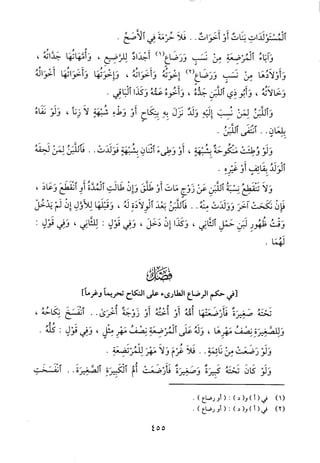 الْمُسْتَوْلَدَاتِ بَنَاتٌ أَوْ أَخَوَاتٌ.. فَلَا حُرْمَةَ فِي الْأَصَحِّ .
وَآبَاءُ الْمُرْضِعَةِ مِنْ نَسَبٍ وَرَضَاعٍ(١) أَجْدَادٌ لِلرَّضِيعِ ، وَأُمَّهَاتُهَا جَدَّاتُهُ ،
وَأَوْلَادُهَا مِنْ نَسَبٍ وَرَضَاعٍ(٢) إِخْوَتُهُ وَأَخَوَاتُهُ ، وَإِخْوَتُهَا وَأَخَوَاتُهَا أَخْوَالُهُ
وَخَالَاتُهُ ، وَأَبُو ذِي اللَّبَنِ جَدُّهُ ، وَأَخُوهُ عَمُّهُ وَكَذَا الْبَاقِي .
وَاللَّبَنُ لِمَنْ نُسِبَ إِلَيْهِ وَلَدٌ نَزَلَ بِهِ بِنِكَاحٍ أَوْ وَطْءِ شُبْهَةٍ لَا زِنًا ، وَلَوْ نَفَاهُ
بِلِعَانٍ.. انْتَفَى اللَّبَنُ .
وَلَوْ وُطِئَتْ مَنْكُوحَةٌ بِشُبْهَةٍ ، أَوْ وَطِىءَ اثْنَانِ بِشُبْهَةٍ فَوَلَدَتْ.. فَاللَّبَنُ لِمَنْ لَحِقَهُ
الْوَلَدُ بِقَائِفٍ أَوْ غَيْرِهِ .
وَلَا تَنْقَطِعُ نِسْبَةُ اللَّبَنِ عَنْ زَوْجٍ مَاتَ أَوْ طَلَّقَ وَإِنْ طَالَتِ الْمُدَّةُ أَوِ انْقَطَعَ وَعَادَ ،
فَإِنْ نَكَحَتْ آخَرَ وَوَلَدَتْ مِنْهُ.. فَاللَّبَنُ بَعْدَ الْوِلَادَةِ لَهُ ، وَقَبْلَهَا لِلْأَوَّلِ إِنْ لَمْ يَدْخُلْ
وَقْتُ ظُهُورِ لَبَنِ حَمْلِ الثَّانِي ، وَكَذَا إِنْ دَخَلَ ، وَفِي قَوْلٍ : لِلثَّانِي ، وَفِي قَوْلٍ :
لَهُمَا .
فَصْلٌ
[في حكم الرضاع الطارىء على النكاح تحريماً وغرماً]
تَحْتَهُ صَغِيرَةٌ فَأَرْضَعَتْهَا أُمُّهُ أَوْ أُخْتُهُ أَوْ زَوْجَةٌ أُخْرَى.. انْفَسَخَ نِكَاحُهُ ،
وَلِلصَّغِيرَةِ نِصْفُ مَهْرِهَا ، وَلَهُ عَلَى الْمُرْضِعَةِ نِصْفُ مَهْرِ مِثْلٍ ، وَفِي قَوْلٍ : كُلُّهُ .
وَلَوْ رَضَعَتْ مِنْ نَائِمَةٍ.. فَلَا غُرْمَ وَلَا مَهْرَ لِلْمُرْتَضِعَةِ .
وَلَوْ كَانَ تَحْتَهُ كَبِيرَةٌ وَصَغِيرَةٌ فَأَرْضَعَتْ أُمُّ الْكَبِيرَةِ الصَّغِيرَةَ.. انْفَسَخَتِ
(١) في (أ) و( د ) : ( أو رضاع ) .
(٢) في (أ) و( د ) : ( أو رضاع ) .
٤٥٥